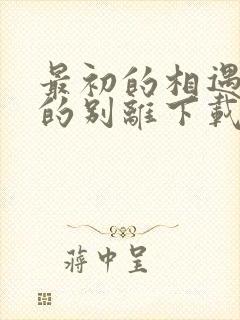 最初的相遇
的别離下載
蒋中呈